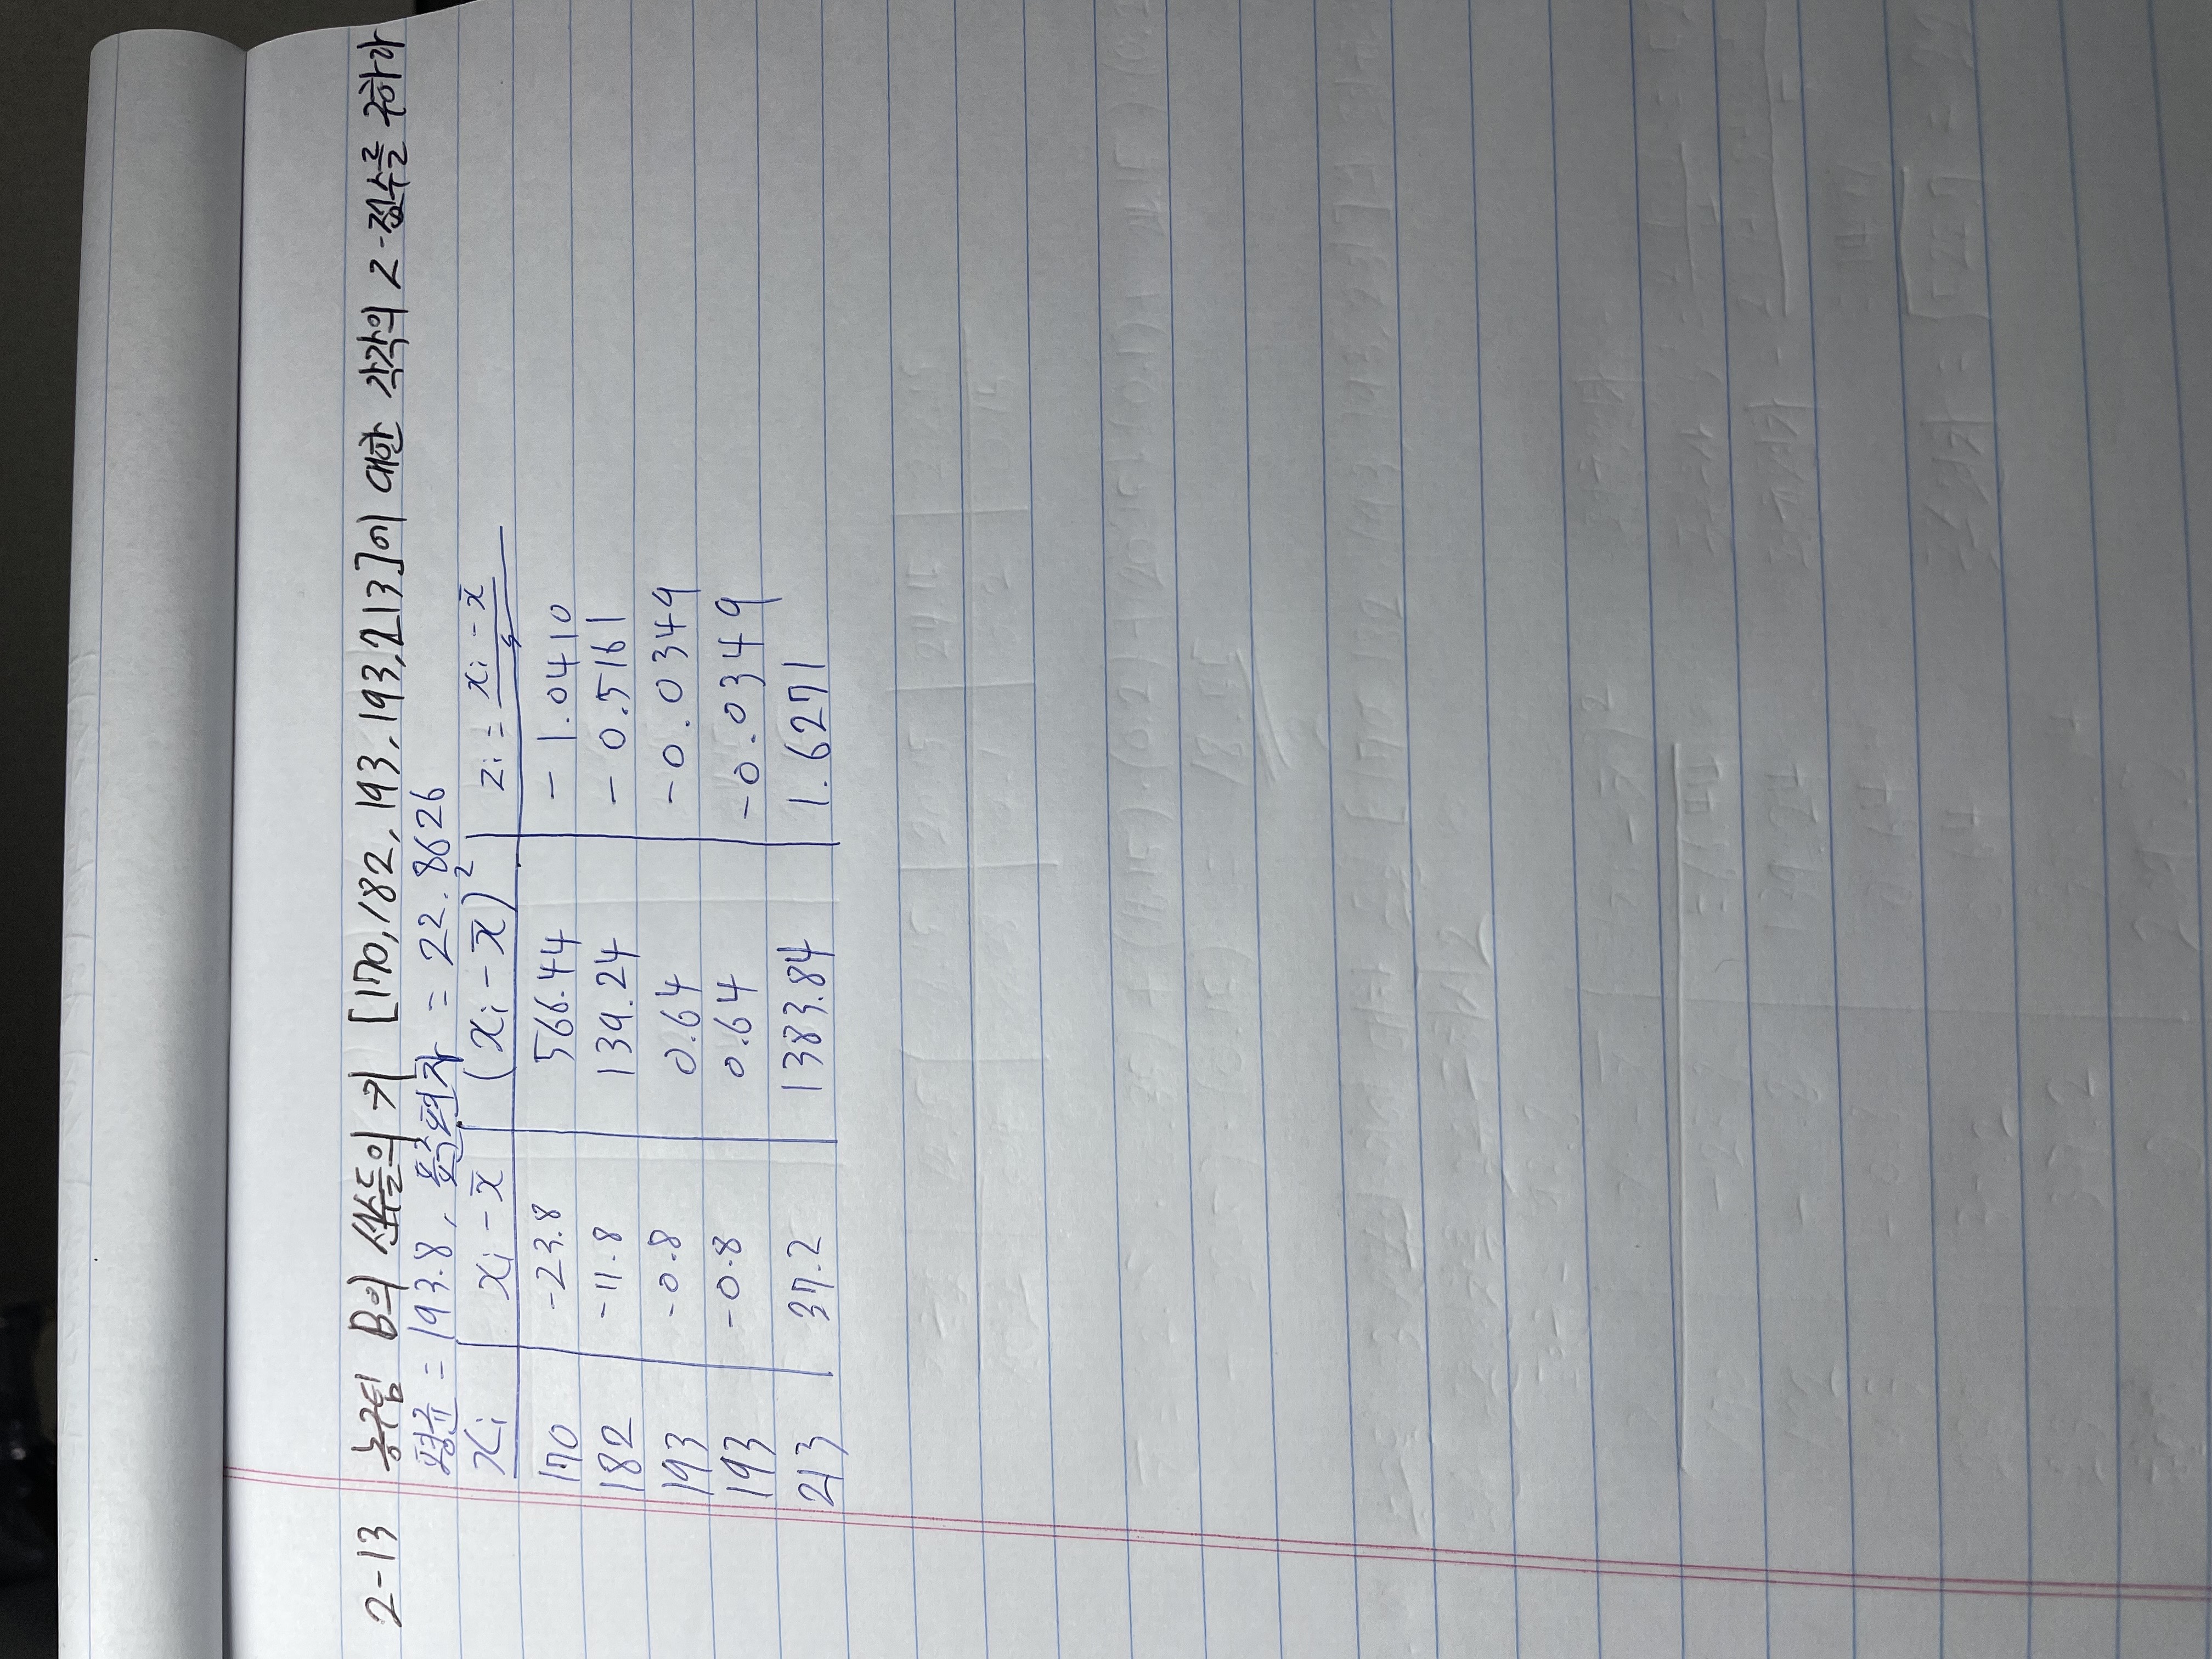 2-13 농구팀 B의 선수들의 키 [170, 182, 193, 193, 213]에 대한 각각의 z-점수를 구하라
평균 = 193.8, 표준편차 = 22.8626
xᵢ | xᵢ - x̄ | (xᵢ - x̄)² | zᵢ = (xᵢ - x̄)/s
170 | -23.8 | 566.44 | -1.0410
182 | -11.8 | 139.24 | -0.5161
193 | -0.8 | 0.64 | -0.0349
193 | -0.8 | 0.64 | -0.0349
213 | 37.2 | 1383.84 | 1.6271